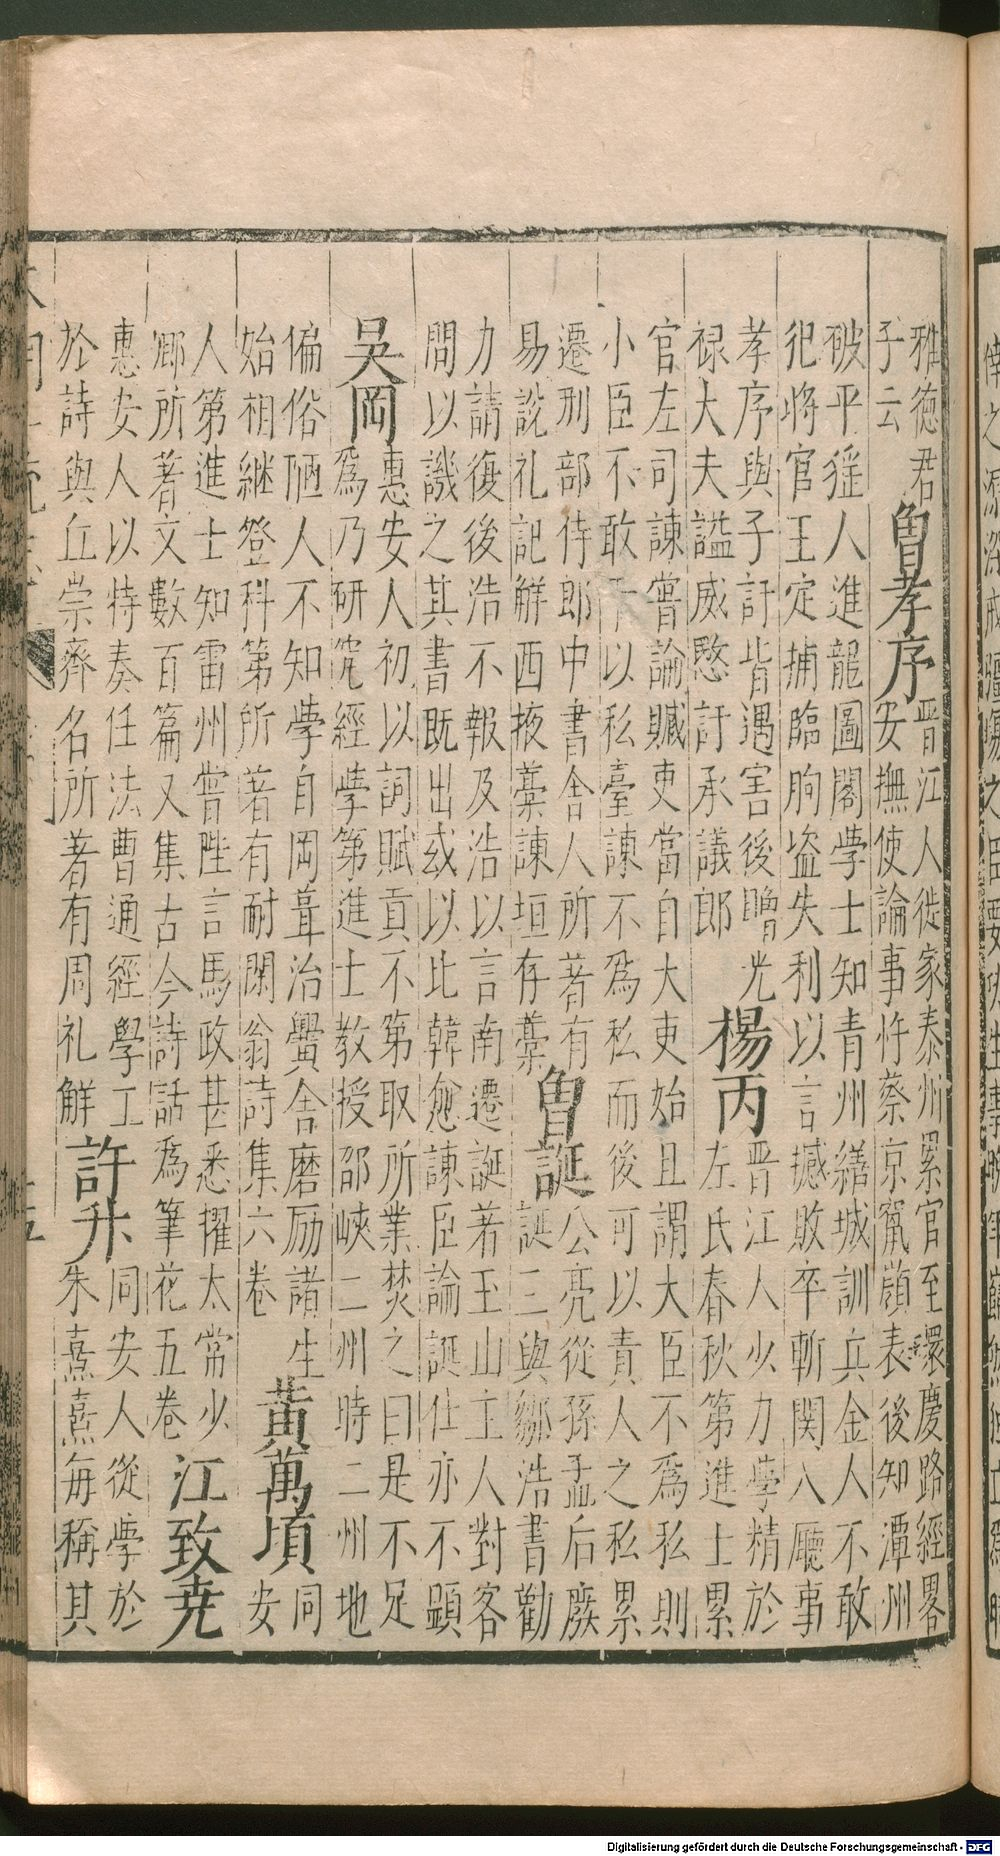 雅德君
子云
曾孝序
晋江人徙家泰州累官至環慶路經畧
安撫使論事忤蔡京竄嶺表後知潭州
破平猺人進龍圖閣學士知青州繕城訓兵金人不敢
犯將官王定捕臨朐盗失利以言撼敗卒斬関入廳事
孝序與子訏皆遇害後贈光
禄大夫謚威愍訏承議郎
楊丙
晋江人少力學精於
左氏春秋第進士累
官左司諫嘗論贓吏當自大吏始且謂大臣不為私則
小臣不敢干以私臺諫不為私而後可以責人之私累
遷刑部侍郎中書舍人所著有
易說礼記解西掖藁諫垣存藁
曾誕
公亮從孫孟后廢
誕三與鄒浩書勸
力請復後浩不報及浩以言南遷誕著玉山主人對客
問以譏之其書既出或以比韓愈諫臣論誕仕亦不顯
吳岡
惠安人初以詞賦貢不第取所業焚之曰是不足
為乃研究經學第進士教授邵峽二州時二州地
偏俗陋人不知學自岡葺治黌舍磨励諸生
始相継登科第所著有耐閑翁詩集六卷
黃萬頃
同
安
人第進士知雷州嘗陛言馬政甚悉擢太常少
卿所著文數百篇又集古今詩話為筆花五卷
江致尭
惠安人以特奏任法曹通經學工
於詩與丘崇齊名所著有周礼解
許升
同安人從學於
朱熹熹每稱其
Digitalisierung gefördert durch die Deutsche Forschungsgemeinschaft - DFG